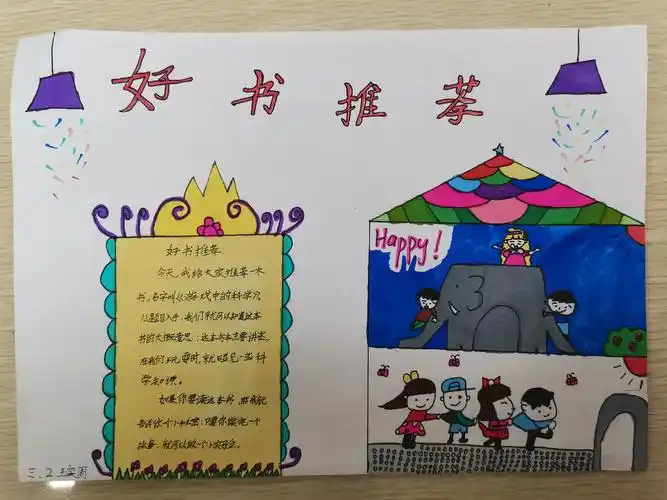 好书推荐
Happy!
好书推荐
今天,我给大家推荐一本
书,名字叫《游戏中的科学》,
从题目入手,我们就可以知道这本
书的大概意思:这本书主要讲述,
在我们玩耍时,就遇见一些科
学知识。
如果你要读这本书,那我就
告诉你一个小秘密:只要你读完一个
故事,就可以做一个小实验。
三、2